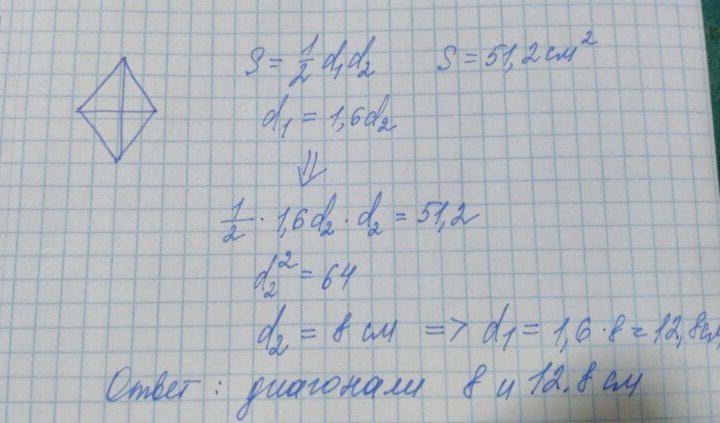 S = 1/2 d₁d₂ S = 51,2 см²
d₁ = 1,6d₂
⇓
1/2 · 1,6d₂ · d₂ = 51,2
d₂² = 64
d₂ = 8 см => d₁ = 1,6 · 8 = 12,8см
Ответ: диагонали 8 и 12.8 см